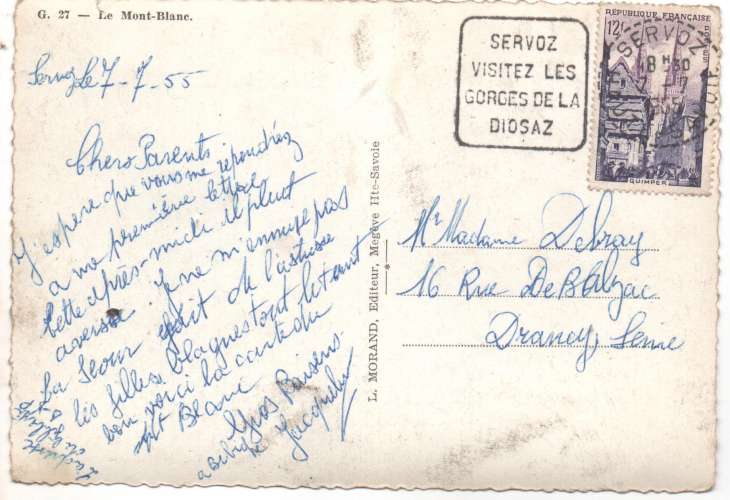 G. 27 — Le Mont-Blanc.
SERVOZ
VISITEZ LES
GORGES DE LA
DIOSAZ
RÉPUBLIQUE FRANÇAISE
12F
SERVOZ
8 H 30
QUIMPER
Servoz Le 7-7-55
Chers Parents
J'espere que vous me repondrez
a ma première lettre
Cette après-midi il pleut
averse. Je ne m'ennuie pas
La Seour de l'astuce
les filles blagues tout le temps
bon voici la carte du
Mt Blanc
Gros Baisers
Jacqueline
L. MORAND, Editeur, Megève Hte-Savoie
Mr Madame Debray
16 Rue De Balzac
Drancy Seine